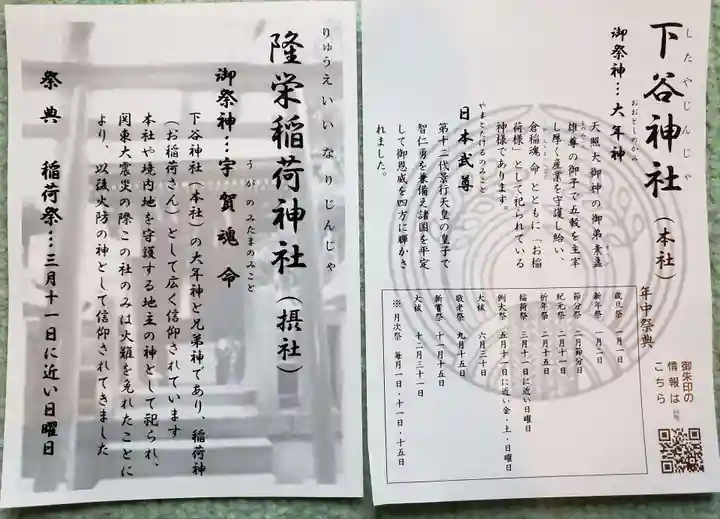 したやじんじゃ
下谷神社（本社）
おおとしのかみ
御祭神…大年神
天照大御神の御弟 素盞
雄尊の御子で五穀を主宰
し厚く産業を守護し給い、
倉稲魂命とともに「お稲
荷様」として祀られている
神様であります。
やまとたけるのみこと
日本武尊
第十二代景行天皇の皇子で
智仁勇を兼備え諸国を平定
して御恩威を四方に輝かさ
れました。
年中祭典
歳旦祭 一月一日
新年祭 一月二日
節分祭 二月節分日
紀元祭 二月十一日
祈年祭 二月十五日
稲荷祭 三月十一日に近い日曜日
例大祭 五月十一日に近い金・土・日曜日
大祓 六月三十日
敬老祭 九月十五日
新嘗祭 十一月十五日
大祓 十二月三十一日
※月次祭 毎月一日・十一日・十五日
御朱印の
情報は
こちら
りゅうえいいなりじんじゃ
隆栄稲荷神社（摂社）
うがのみたまのみこと
御祭神…宇賀魂命
下谷神社（本社）の大年神と兄弟神であり、稲荷神
（お稲荷さん）として広く信仰されています
本社や境内地を守護する地主の神として祀られ、
関東大震災の際この社のみは火難を免れたことに
より、以後火防の神として信仰されてきました
祭典 稲荷祭…三月十一日に近い日曜日